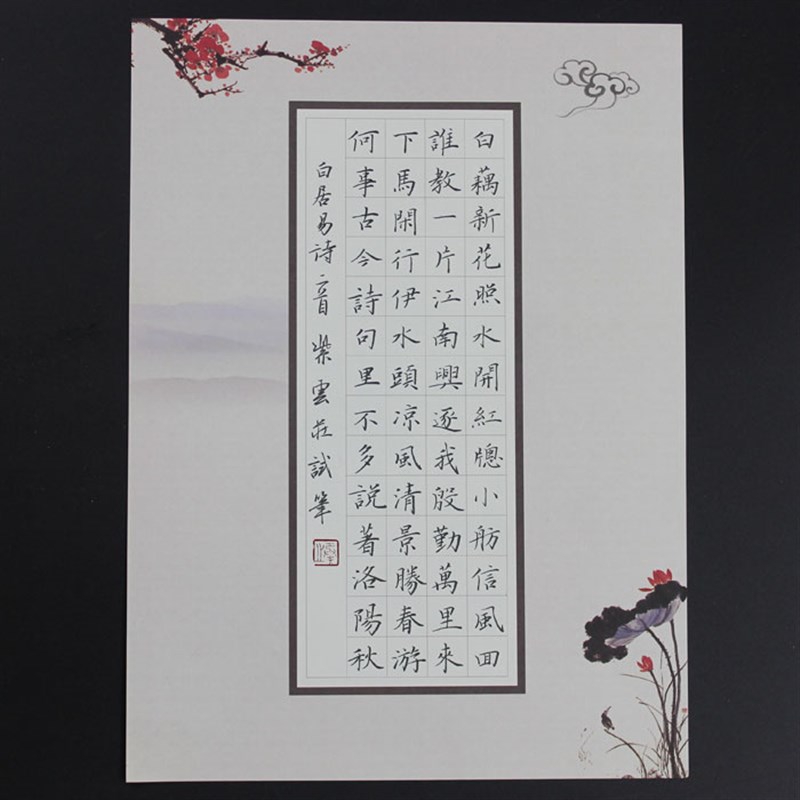 白藕新花照水開紅牕小舫信風回
誰教一片江南興逐我殷勤萬里來
下馬閑行伊水頭凉風清景勝春游
何事古今詩句里不多説著洛陽秋
白居易詩音 紫雲莊試筆